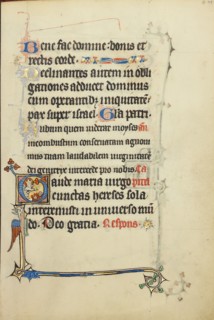 Bene fac domine: bonis et
rectis corde.
Declinantes autem in obli
gationes adducet dominus
cum operantib; iniquitatem
pax super israel. Gła patri.
Rubum quem viderat moyses
incombustum conservatam agnovi
mus tuam laudabilem virginitate
dei genetrix intercede pro nobis.
Gaude maria virgo
cunctas hereses sola
interemisti in universo mu
do. Deo gracias. Respons.